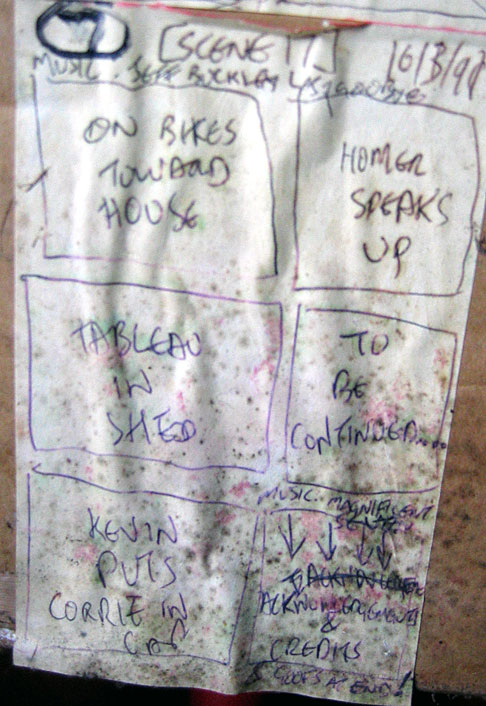 7
SCENE 1
16/3/98
MUSIC. JEFF BUCKLEY LAST GOODBYE
ON BIKES
TOWARD
HOUSE
HOMER
SPEAKS
UP
TABLEAU
IN
SHED
TO
BE
CONTINUED.....
KEVIN
PUTS
CORRIE IN
CAR
MUSIC... MAGNIFICENT
SEVEN
ACKNOWLEDGMENTS
&
CREDITS
AT END!